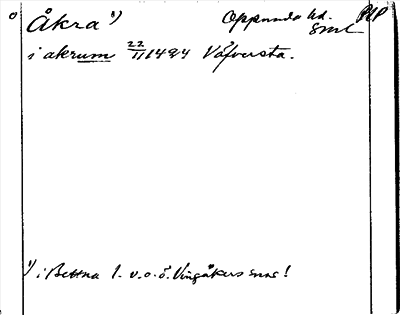 o Åkra 1) Oppunda hd. PHP
Sml
i akrum 22/11 1484 Väfversta.
1) i Bettna l. v. o. ö. Vingåkers snr!